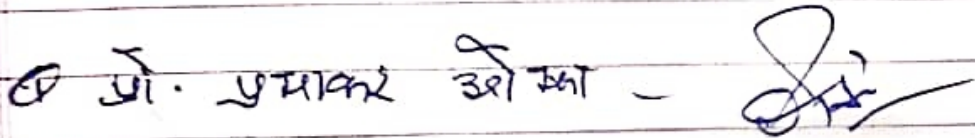 प्रो. प्रभाकर ओझा -